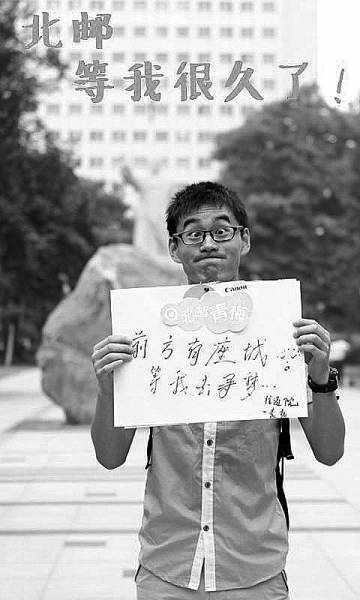 北邮
等我很久了！
Canon
@北邮青梅
前方有座城
等我去寻梦...
信通院